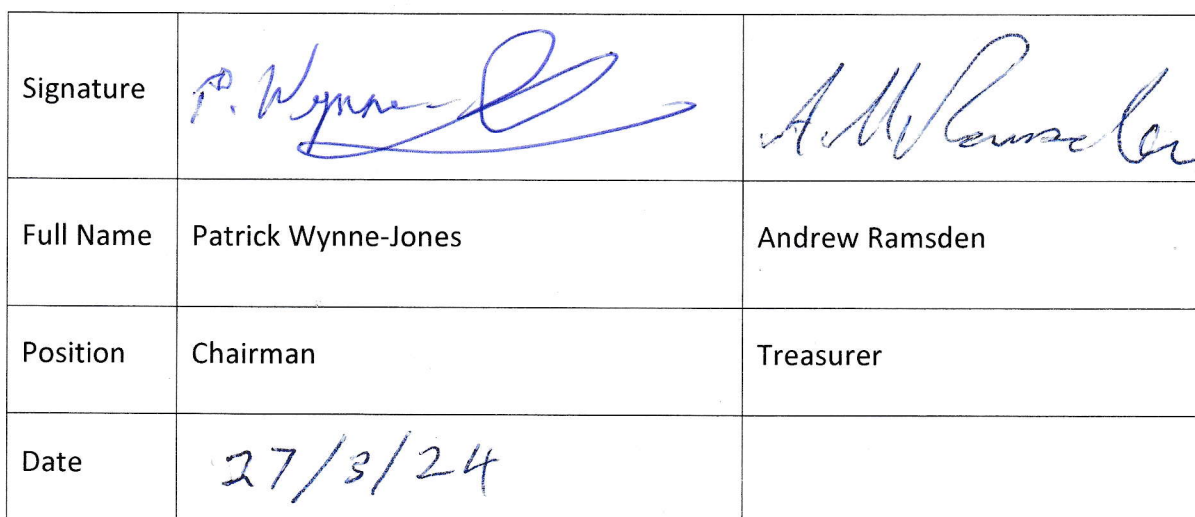 Signature P. Wynne A. M. Ramsden
Full Name Patrick Wynne-Jones Andrew Ramsden
Position Chairman Treasurer
Date 27/3/24